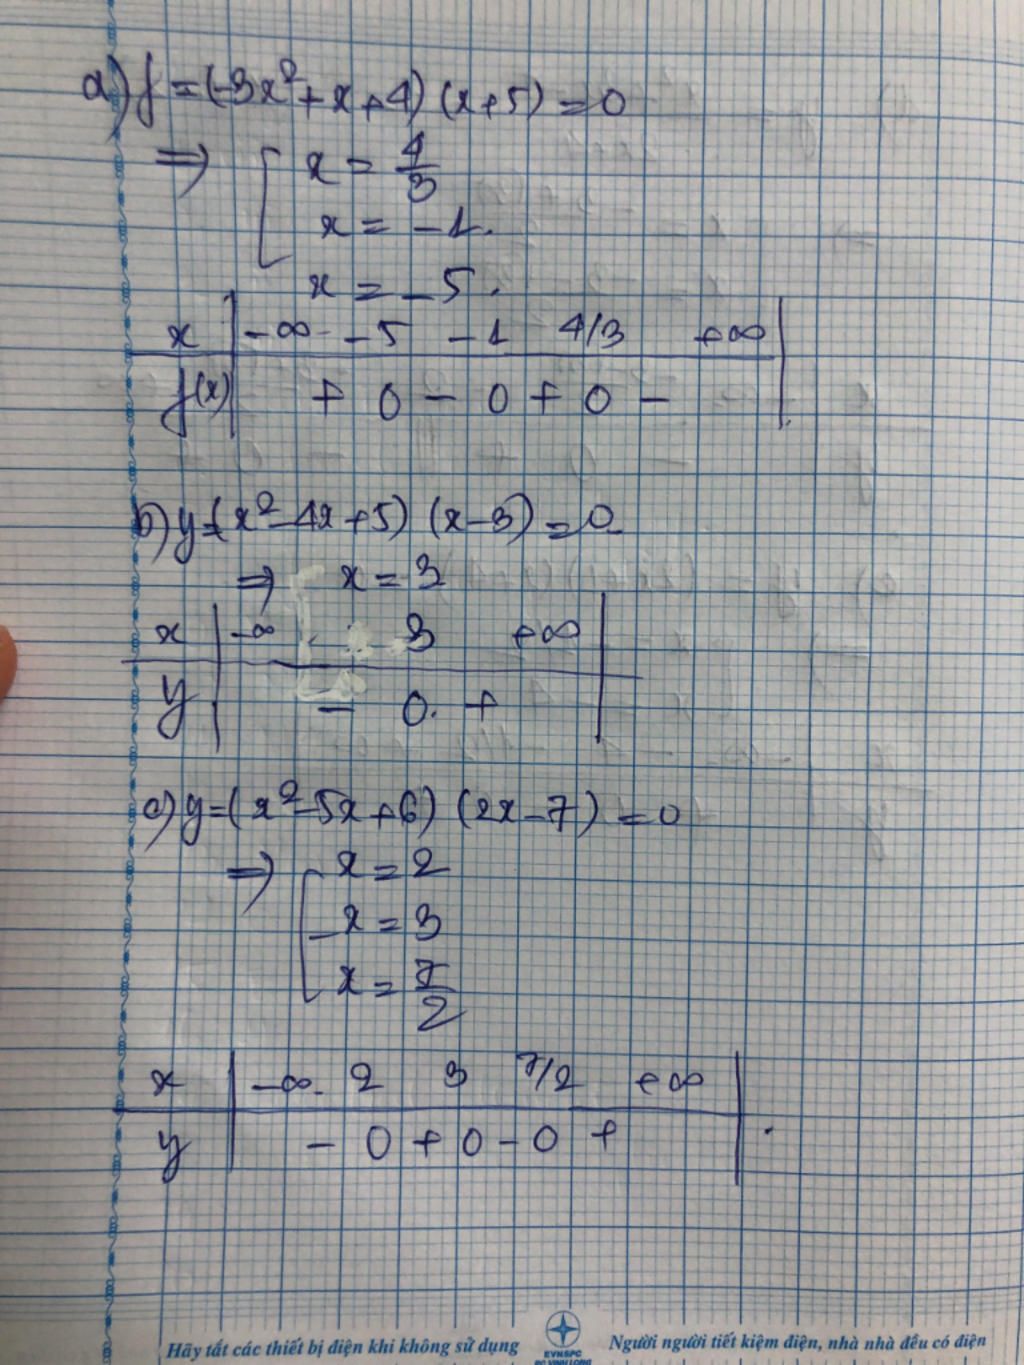 a) f = (-3x² + x + 4) (x + 5) = 0
⇒ [ x = 4/3
x = -1.
x = -5.
x | -∞ -5 -1 4/3 +∞ |
f(x) | + 0 - 0 + 0 - |
b) y = (x² - 4x + 5) (x - 3) = 0
⇒ x = 3
x | -∞ 3 +∞ |
y | - 0. + |
c) y = (x² - 5x + 6) (2x - 7) = 0
⇒ [ x = 2
x = 3
x = 7/2
x | -∞ 2 3 7/2 +∞ |
y | - 0 + 0 - 0 + | .
Hãy tắt các thiết bị điện khi không sử dụng
EVNSPC
PC VINH LONG
Người người tiết kiệm điện, nhà nhà đều có điện